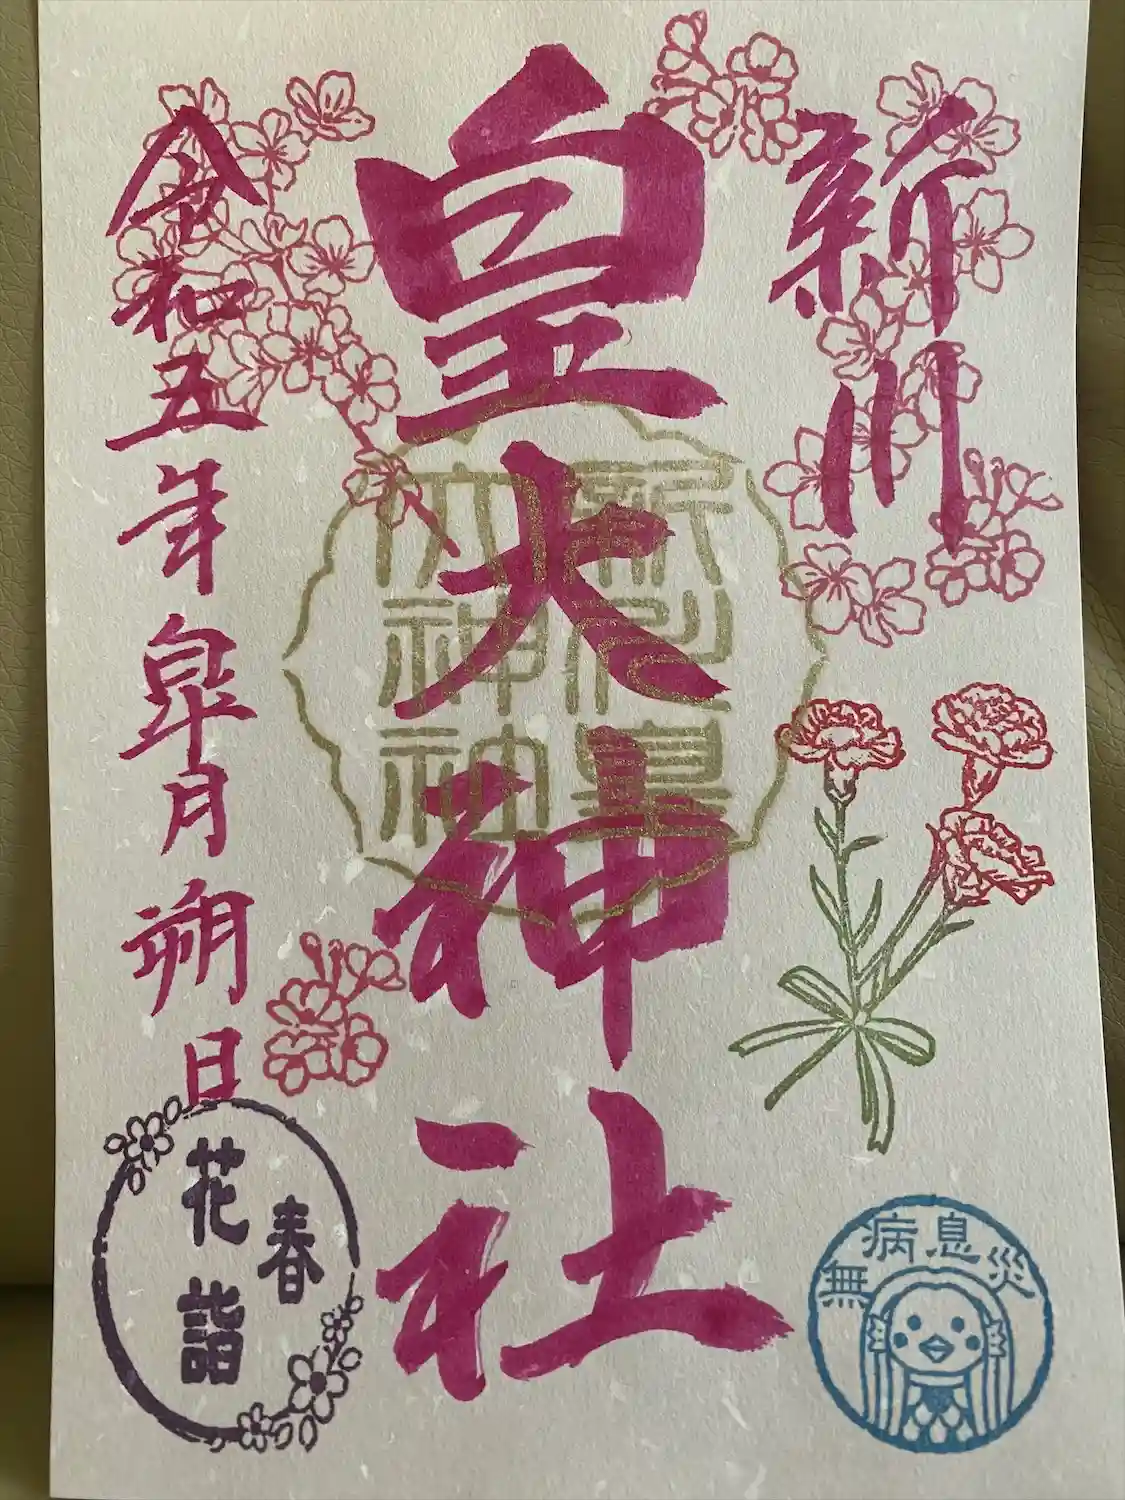 新川
皇大神社
令和五年皐月朔日
新川皇
大神社
春
花詣
無病息災